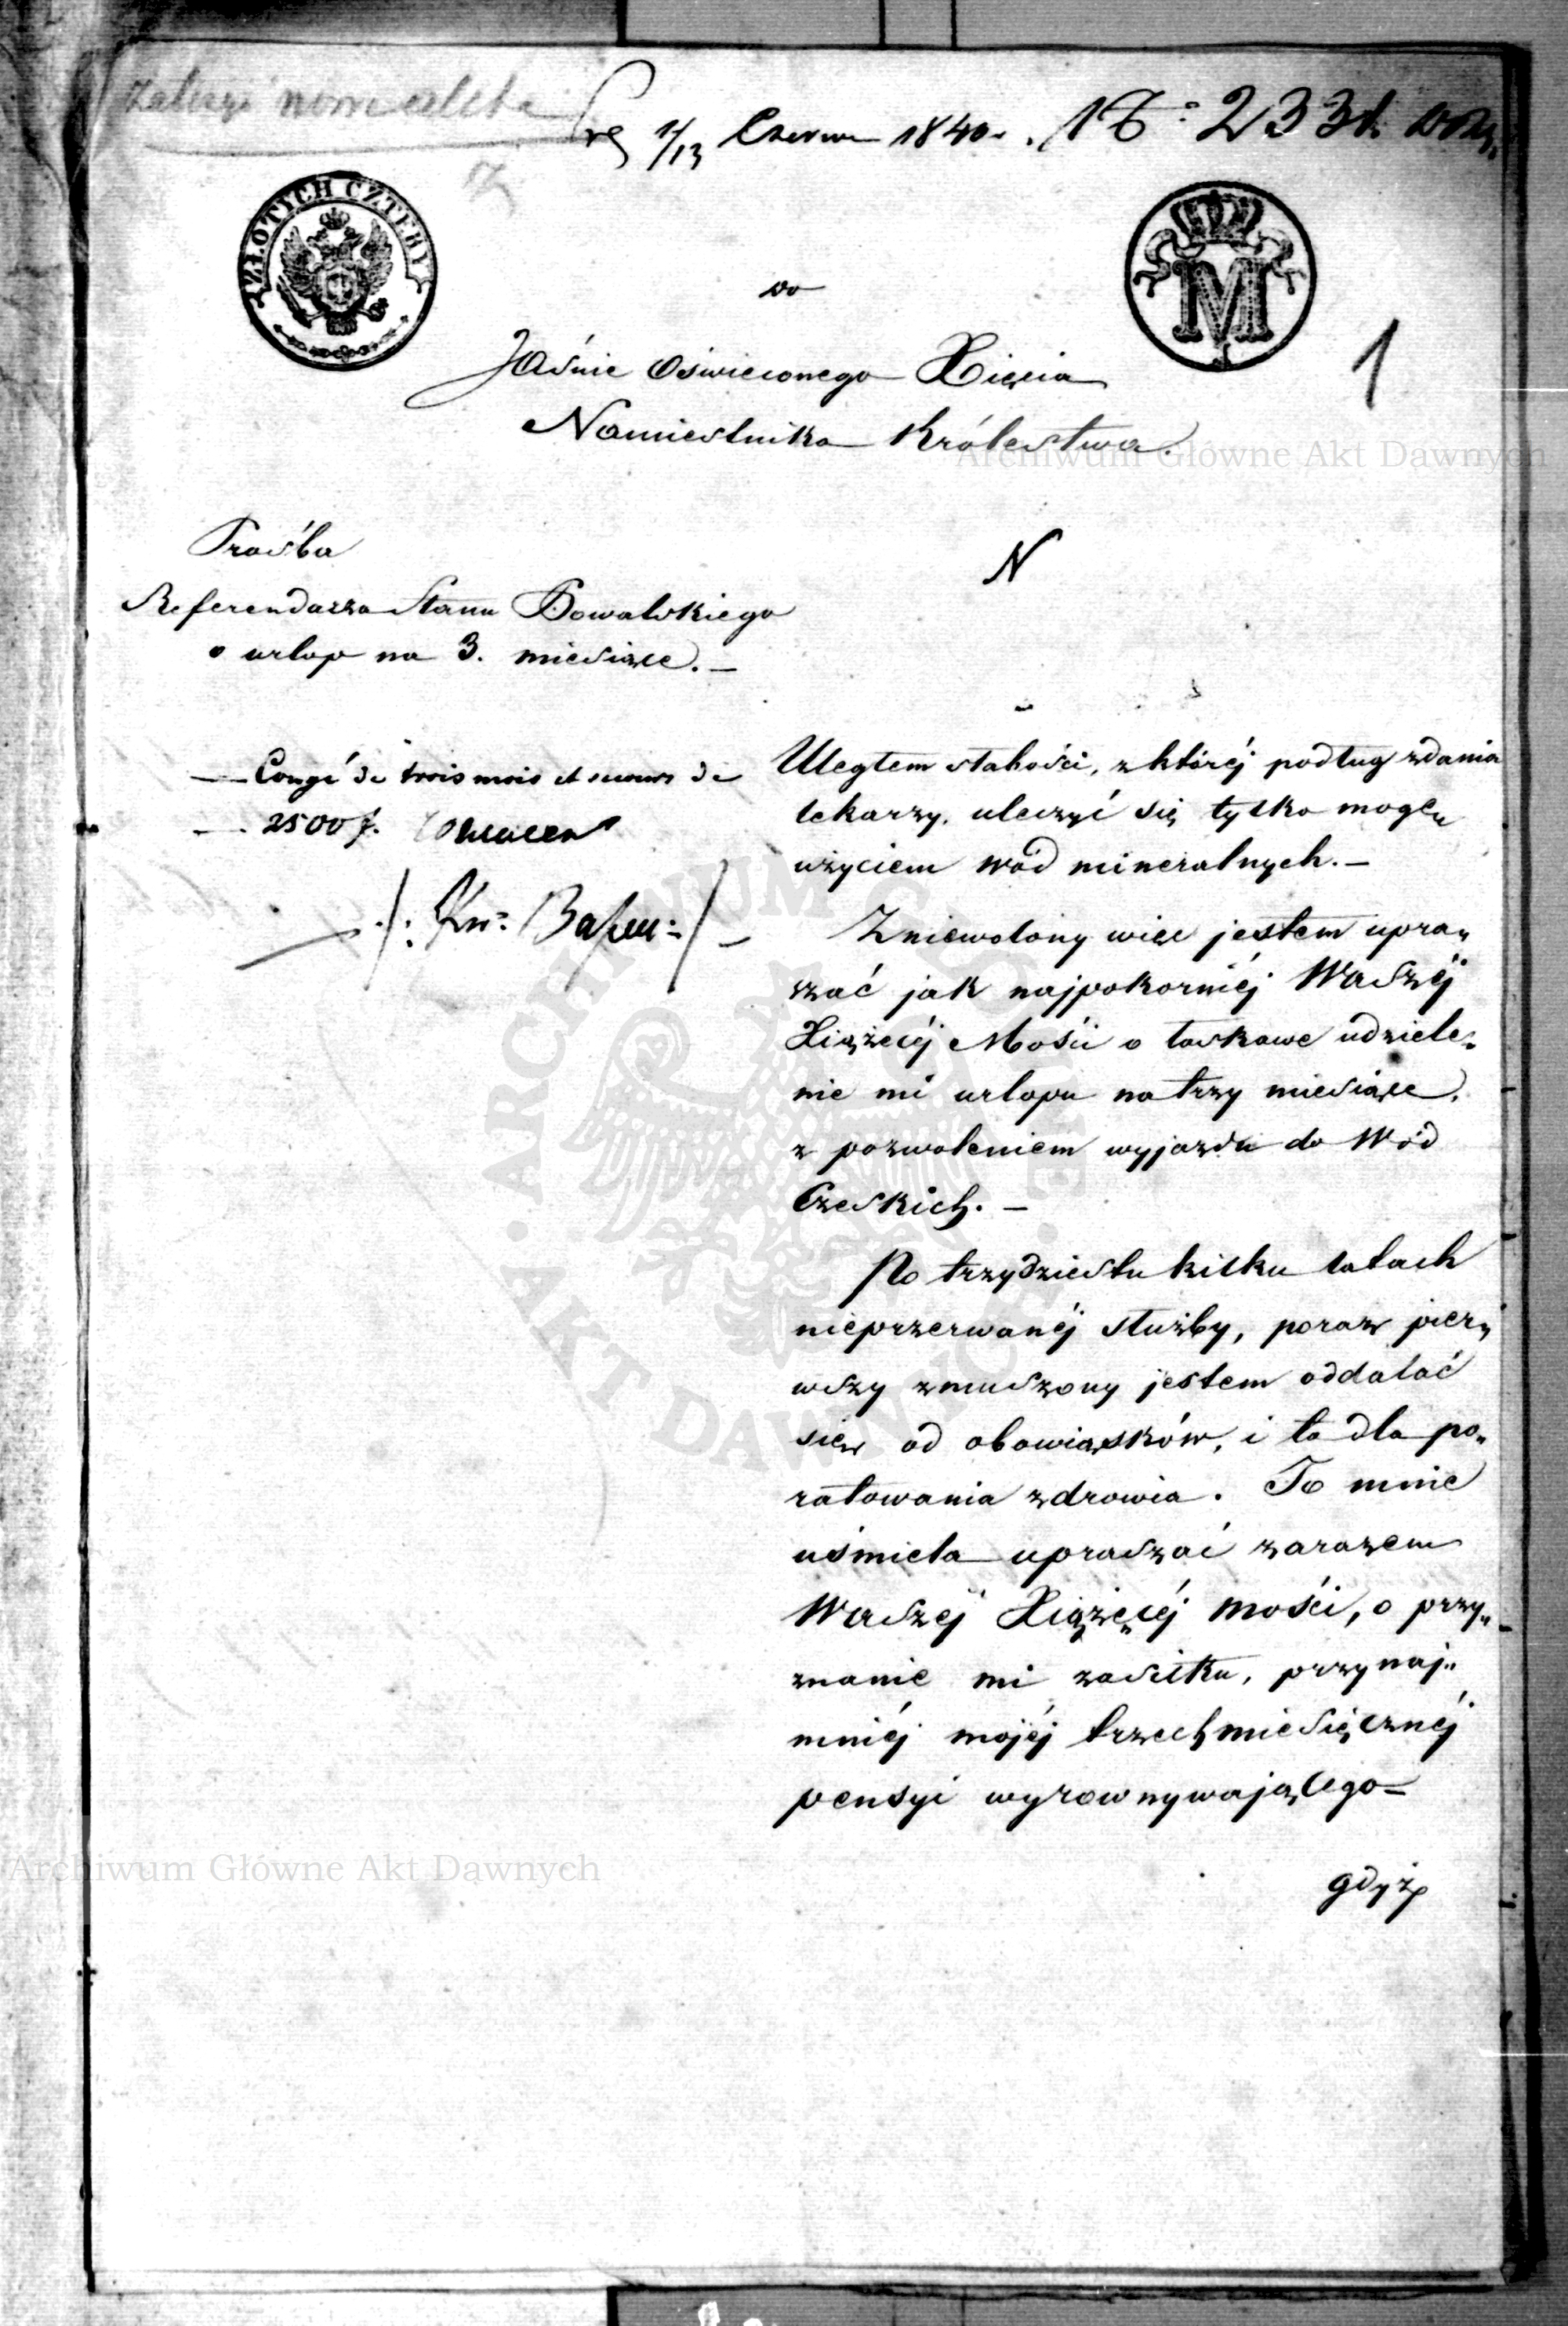 1/13 Czerwca 1840. 
ZŁOTYCH CZTERY
M
1
do
Jaśnie Oświeconego Xięcia
Namiestnika Królestwa.
Archiwum Główne Akt Dawnych
Prośba
Referendarza Stanu Kowalskiego
o urlop na 3. miesiące. —
N
— Congé de trois mois et secours de
— 2500 f.
Uległem słabości, z której podług zdania
lekarzy, uleczyć się tylko mogę
użyciem wód mineralnych. —
Zniewolony więc jestem upra„
szać jak najpokorniéj Waszéj
Xiążecéj Mości o łaskawe udziele„
nie mi urlopu na trzy miesiące,
z pozwoleniem wyjazdu do Wód
Czeskich. —
Po trzydziestu kilku latach
nieprzerwanéj służby, poraz pier„
wszy zmuszony jestem oddalać
się od obowiązków, i to dla po„
ratowania zdrowia. To mnie
uśmiela upraszać zarazem
Waszéj Xiążęcéj Mości, o przy„
znanie mi zasiłku, przynaj„
mniéj mojéj trzechmiesięcznéj
pensyi wyrownywającego =
gdyż
ARCHIWUM GŁÓWNE AKT DAWNYCH
Archiwum Główne Akt Dawnych